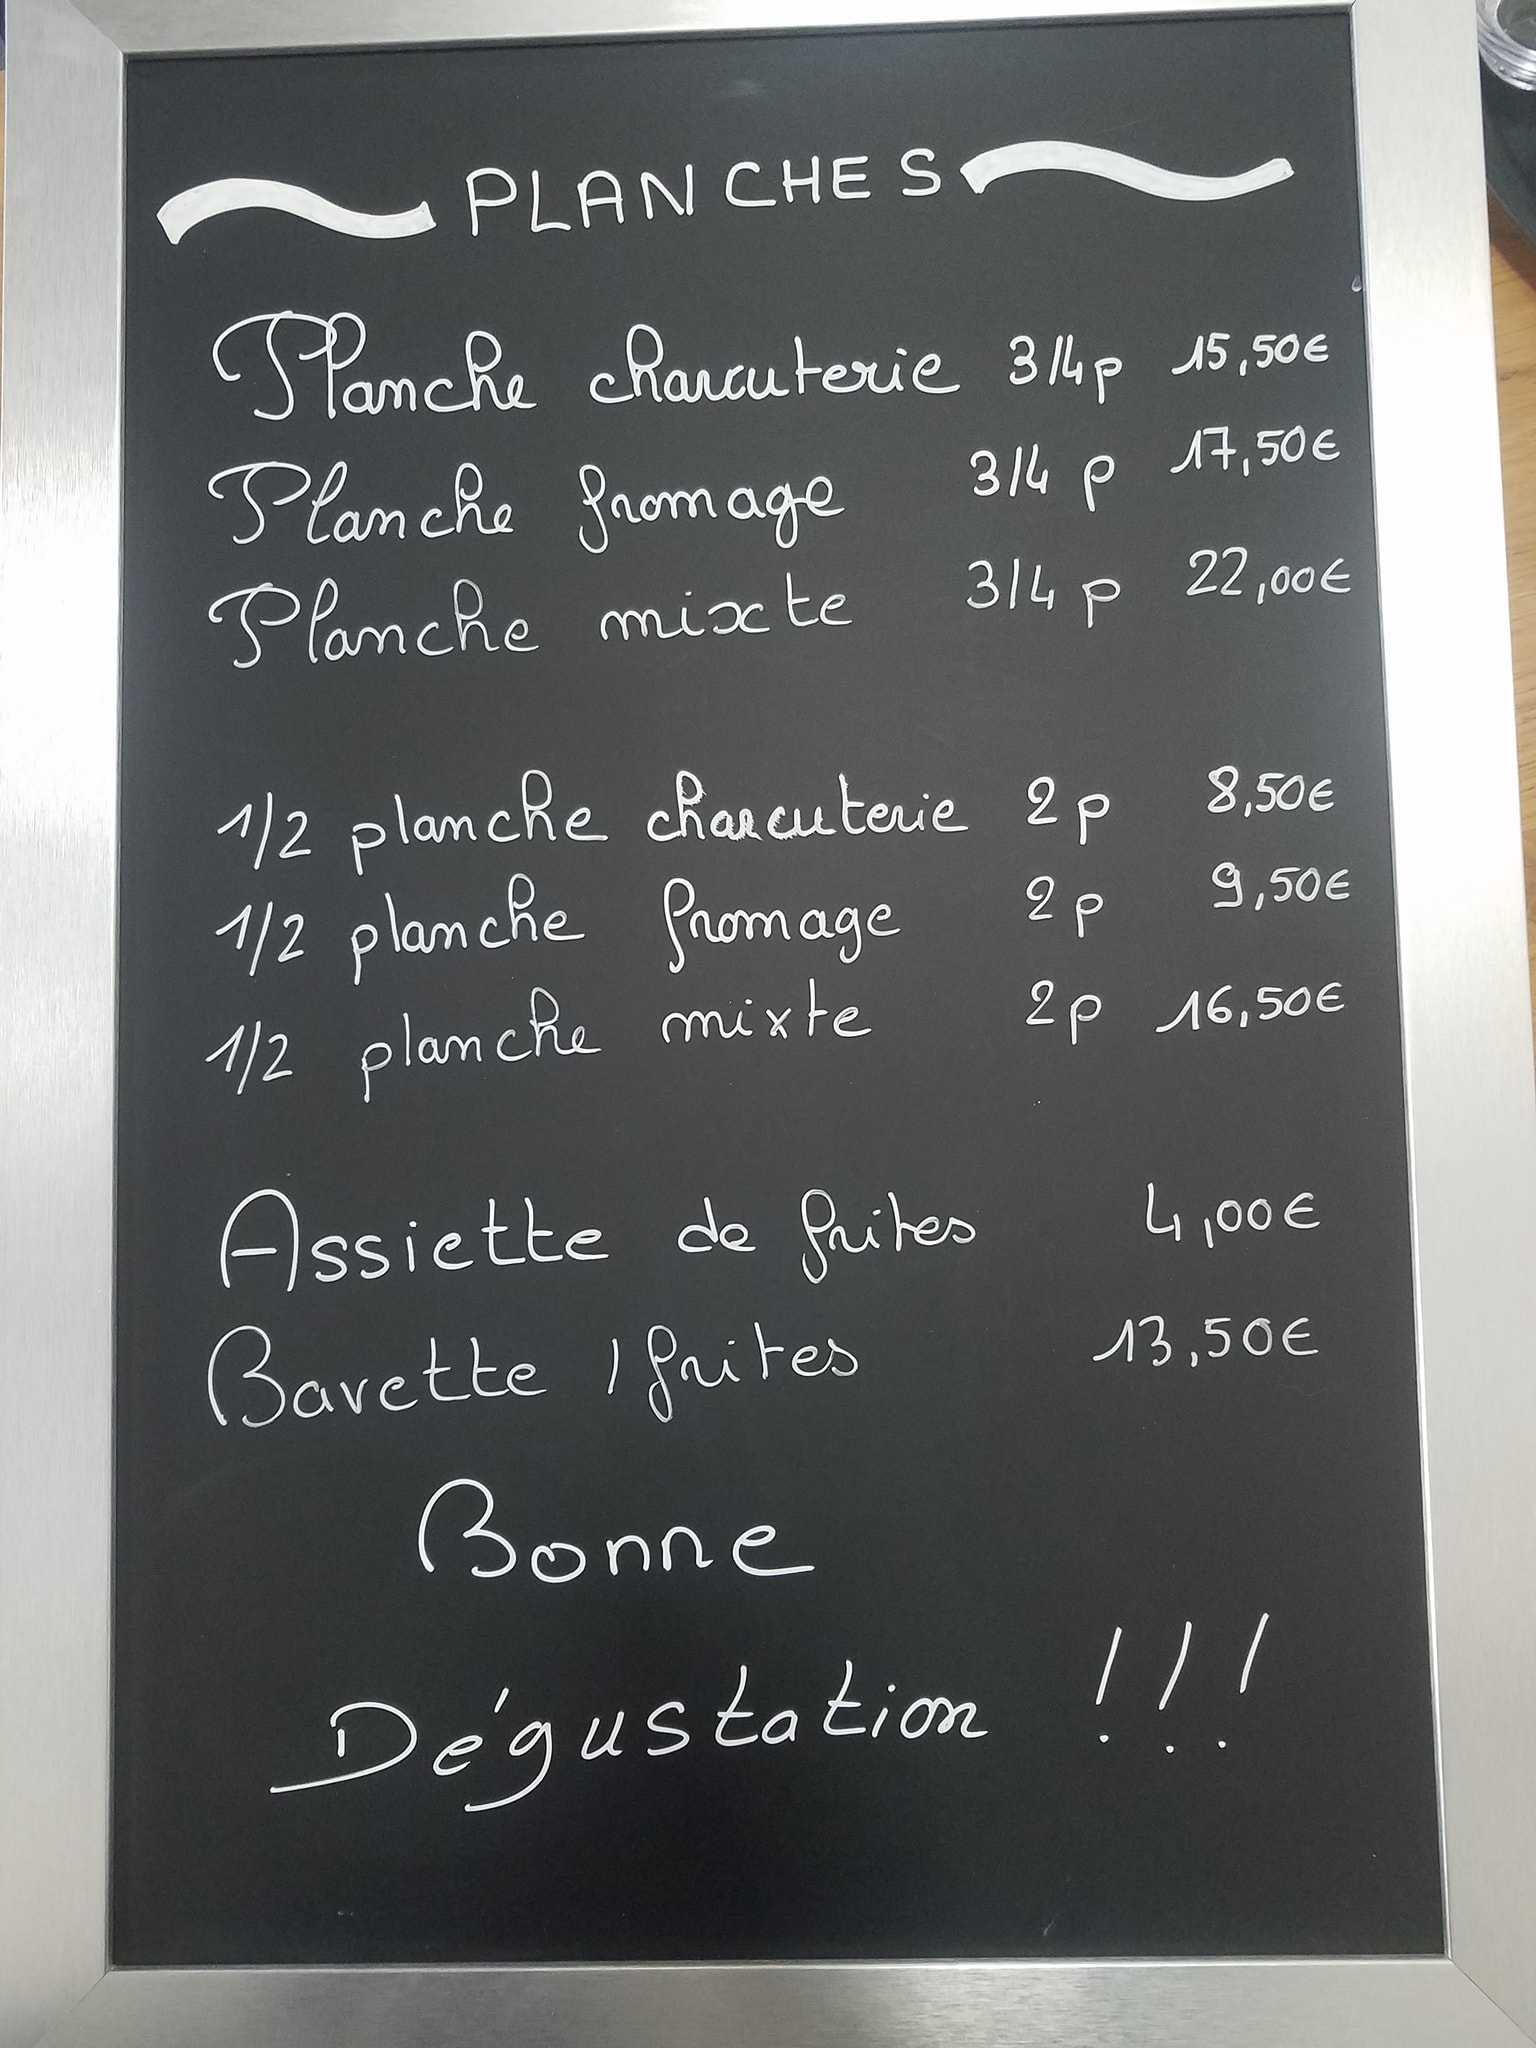 PLANCHES
Planche charcuterie 3/4p 15,50€
Planche fromage 3/4 p 17,50€
Planche mixte 3/4 p 22,00€
1/2 planche charcuterie 2p 8,50€
1/2 planche fromage 2p 9,50€
1/2 planche mixte 2p 16,50€
Assiette de frites 4,00€
Bavette / frites 13,50€
Bonne
Dégustation !!!